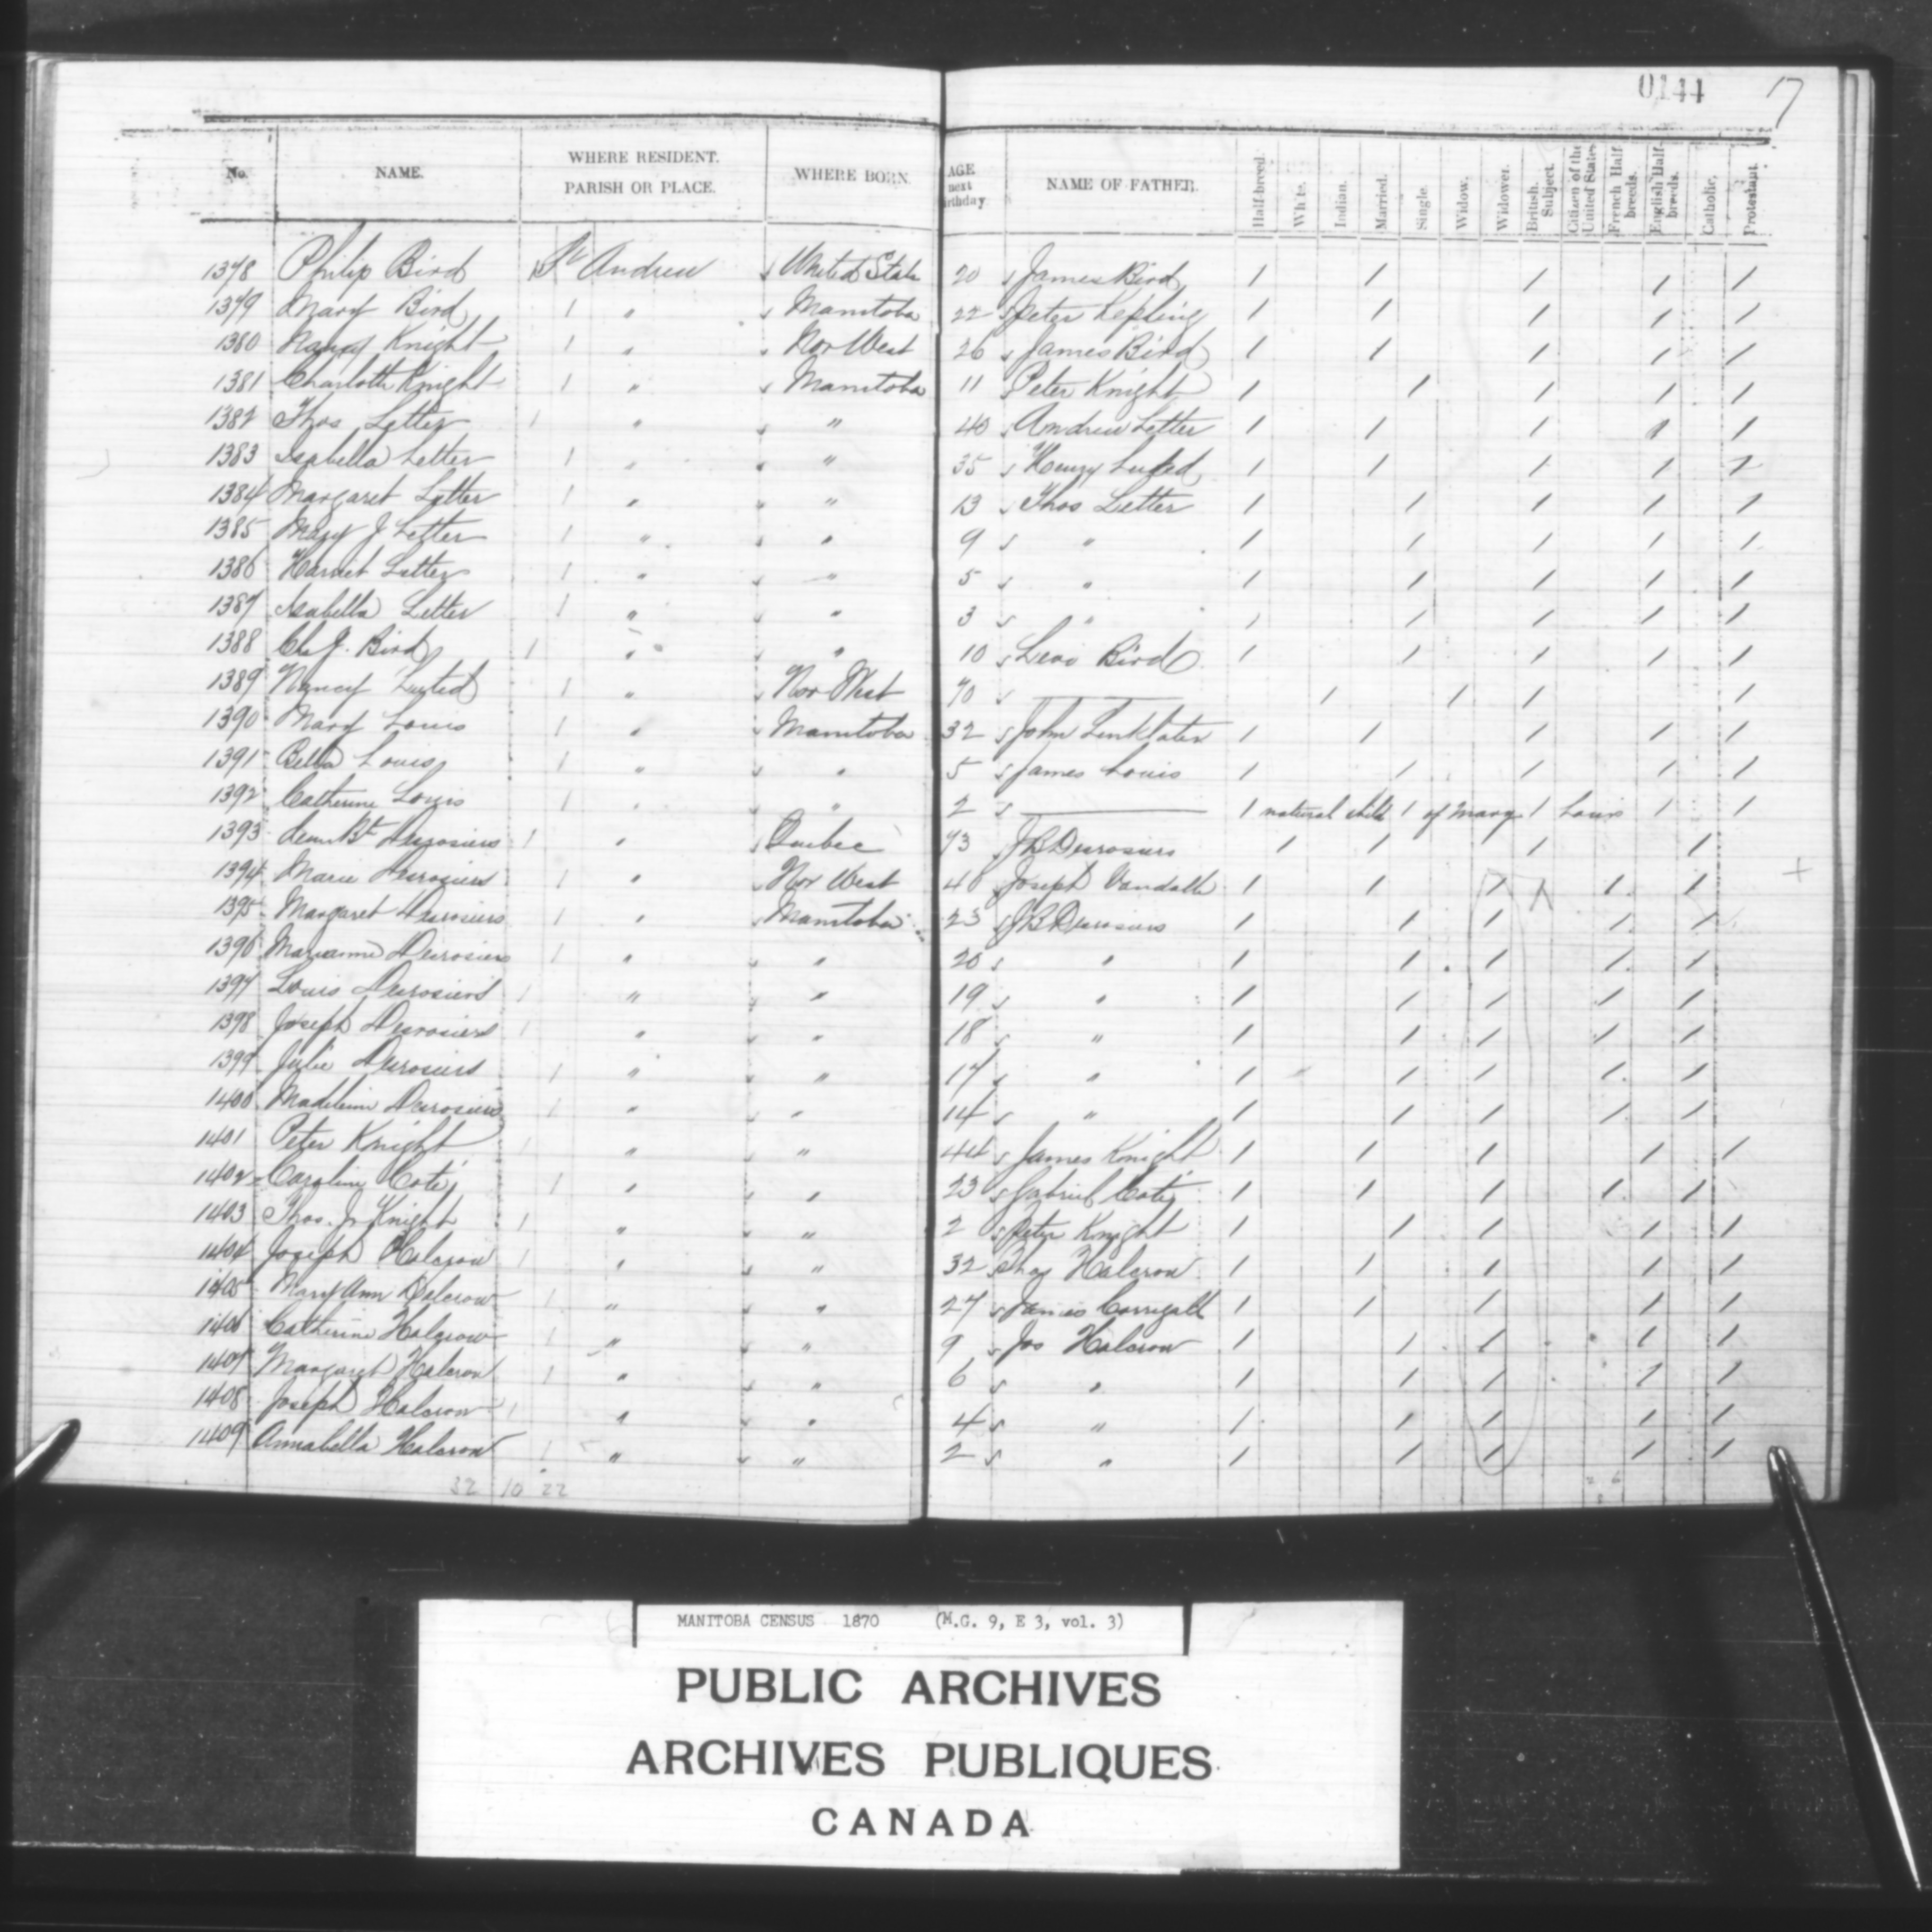 0144 17
No. NAME. WHERE RESIDENT. PARISH OR PLACE. WHERE BORN. AGE next birthday NAME OF FATHER. Half-breed. White. Indian. Married. Single. Widow. Widower. British Subject. Citizen of the United States French Half-breeds. English Half-breeds. Catholic. Protestant.
1378 Philip Bird St Andrew United State 20 James Bird / / / / /
1379 Mary Bird 1 " Manitoba 22 Peter Kepling / / / / /
1380 Nancy Knight 1 " Nor West 26 James Bird / / / / /
1381 Charlotte Knight 1 " Manitoba 11 Peter Knight / / / / /
1382 Thos Letter 1 " " 40 Andrew Letter / / / / /
1383 Isabella Letter 1 " " 35 Henry / / / / /
1384 Margaret Letter 1 " " 13 Thos Letter / / / / /
1385 Mary J Letter 1 " " 9 " / / / / /
1386 Harriet Letter 1 " " 5 " / / / / /
1387 Isabella Letter 1 " " 3 " / / / / /
1388 J. Bird 1 " " 10 Levi Bird / / / / /
1389 Nancy 1 " Nor West 70 — / / / /
1390 Mary Louis 1 " Manitoba 32 John Linklater / / / / /
1391 Bella Louis 1 " " 5 James Louis / / / / /
1392 Catherine Louis 1 " " 2 — / natural child / of Mary / Louis / /
1393 Bt Desrosiers 1 " Quebec 73 JB Desrosiers / / / /
1394 Marie Desrosiers 1 " Nor West 40 Joseph Vandalle / / / / /
1395 Margaret Desrosiers 1 " Manitoba 23 JB Desrosiers / / / / /
1396 Marianne Desrosiers 1 " " 20 " / / / / /
1397 Louis Desrosiers 1 " " 19 " / / / / /
1398 Joseph Desrosiers 1 " " 18 " / / / / /
1399 Julie Desrosiers 1 " " 17 " / / / / /
1400 Madeleine Desrosiers 1 " " 14 " / / / / /
1401 Peter Knight 1 " " 44 James Knight / / / / /
1402 Caroline Coté 1 " " 23 Gabriel Coté / / / / /
1403 Thos. J. Knight 1 " " 2 Peter Knight / / / / /
1404 Joseph Halcrow 1 " " 32 Thos Halcrow / / / / /
1405 Mary Ann Halcrow 1 " " 27 James Corrigall / / / / /
1406 Catherine Halcrow 1 " " 9 Jos Halcrow / / / / /
1407 Margaret Halcrow 1 " " 6 " / / / / /
1408 Joseph Halcrow 1 " " 4 " / / / / /
1409 Annabella Halcrow 1 " " 2 " / / / / /
32 10 22
MANITOBA CENSUS 1870 (M.G. 9, E 3, vol. 3)
PUBLIC ARCHIVES
ARCHIVES PUBLIQUES
CANADA